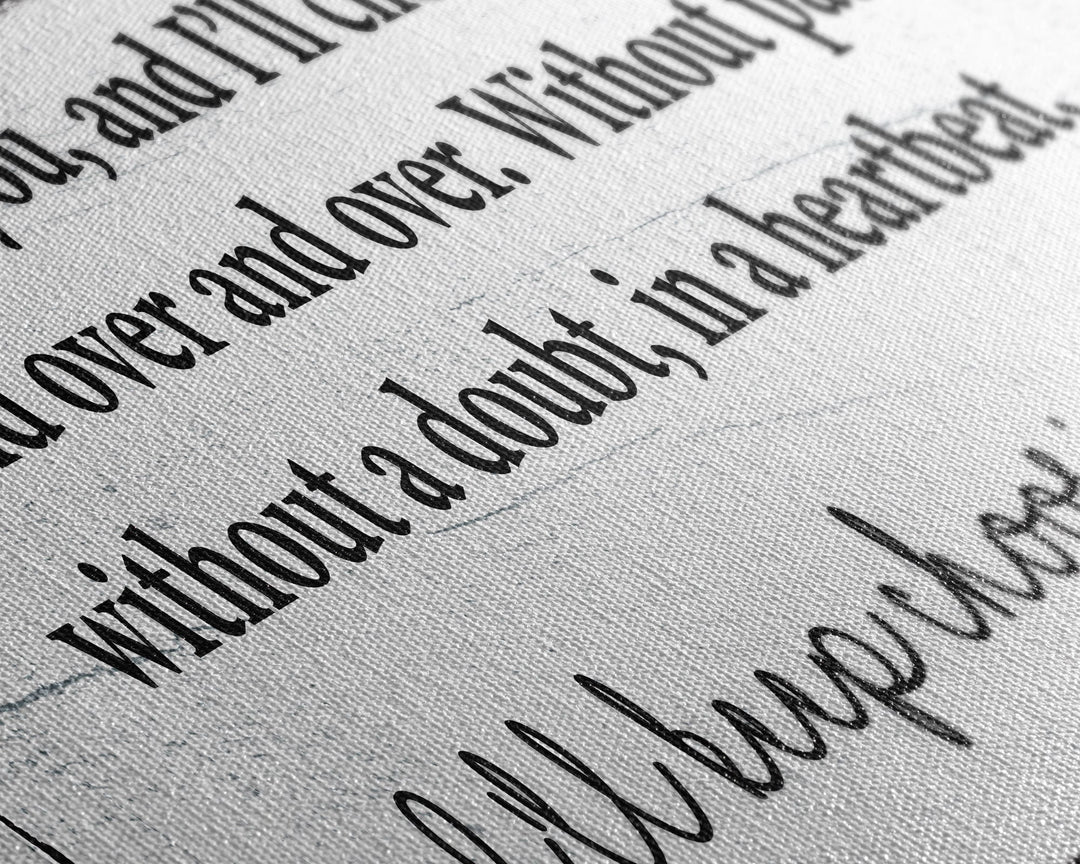 you, and I'll ch
nd over and over. Without pa
without a doubt, in a heartbeat.
I'll keep choos